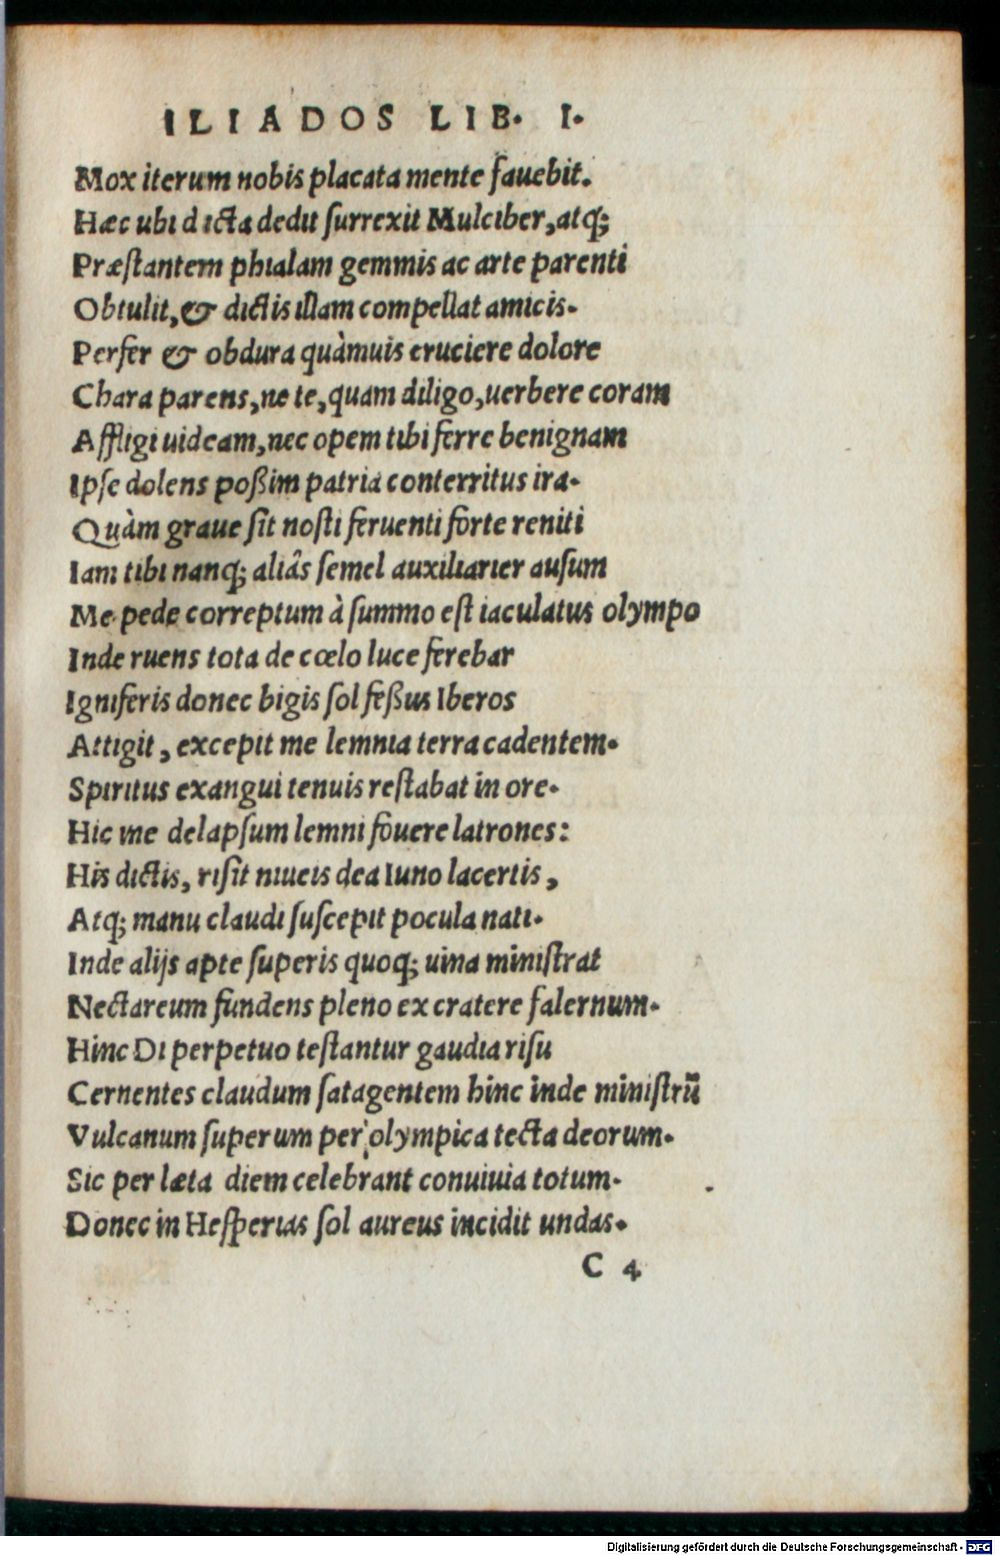 ILIADOS LIB. I.
Mox iterum nobis placata mente fauebit.
Hæc ubi dicta dedit ſurrexit Mulciber, atq;
Præſtantem phialam gemmis ac arte parenti
Obtulit, & dictis illam compellat amicis.
Perfer & obdura quàmuis cruciere dolore
Chara parens, ne te, quam diligo, uerbere coram
Affligi uideam, nec opem tibi ferre benignam
Ipſe dolens poßim patria conterritus ira.
Quàm graue ſit noſti feruenti forte reniti
Iam tibi nanq; aliâs ſemel auxiliarier auſum
Me pede correptum à ſummo eſt iaculatus olympo
Inde ruens tota de cœlo luce ferebar
Igniferis donec bigis ſol feßus Iberos
Attigit, excepit me lemnia terra cadentem.
Spiritus exangui tenuis reſtabat in ore.
Hic me delapſum lemni fouere latrones:
His dictis, riſit niueis dea Iuno lacertis,
Atq; manu claudi ſuſcepit pocula nati.
Inde alijs apte ſuperis quoq; uina miniſtrat
Nectareum fundens pleno ex cratere falernum.
Hinc Di perpetuo teſtantur gaudia riſu
Cernentes claudum ſatagentem hinc inde miniſtrū
Vulcanum ſuperum per olympica tecta deorum.
Sic per læta diem celebrant conuiuia totum.
Donec in Heſperias ſol aureus incidit undas.
C 4
Digitalisierung gefördert durch die Deutsche Forschungsgemeinschaft - DFG